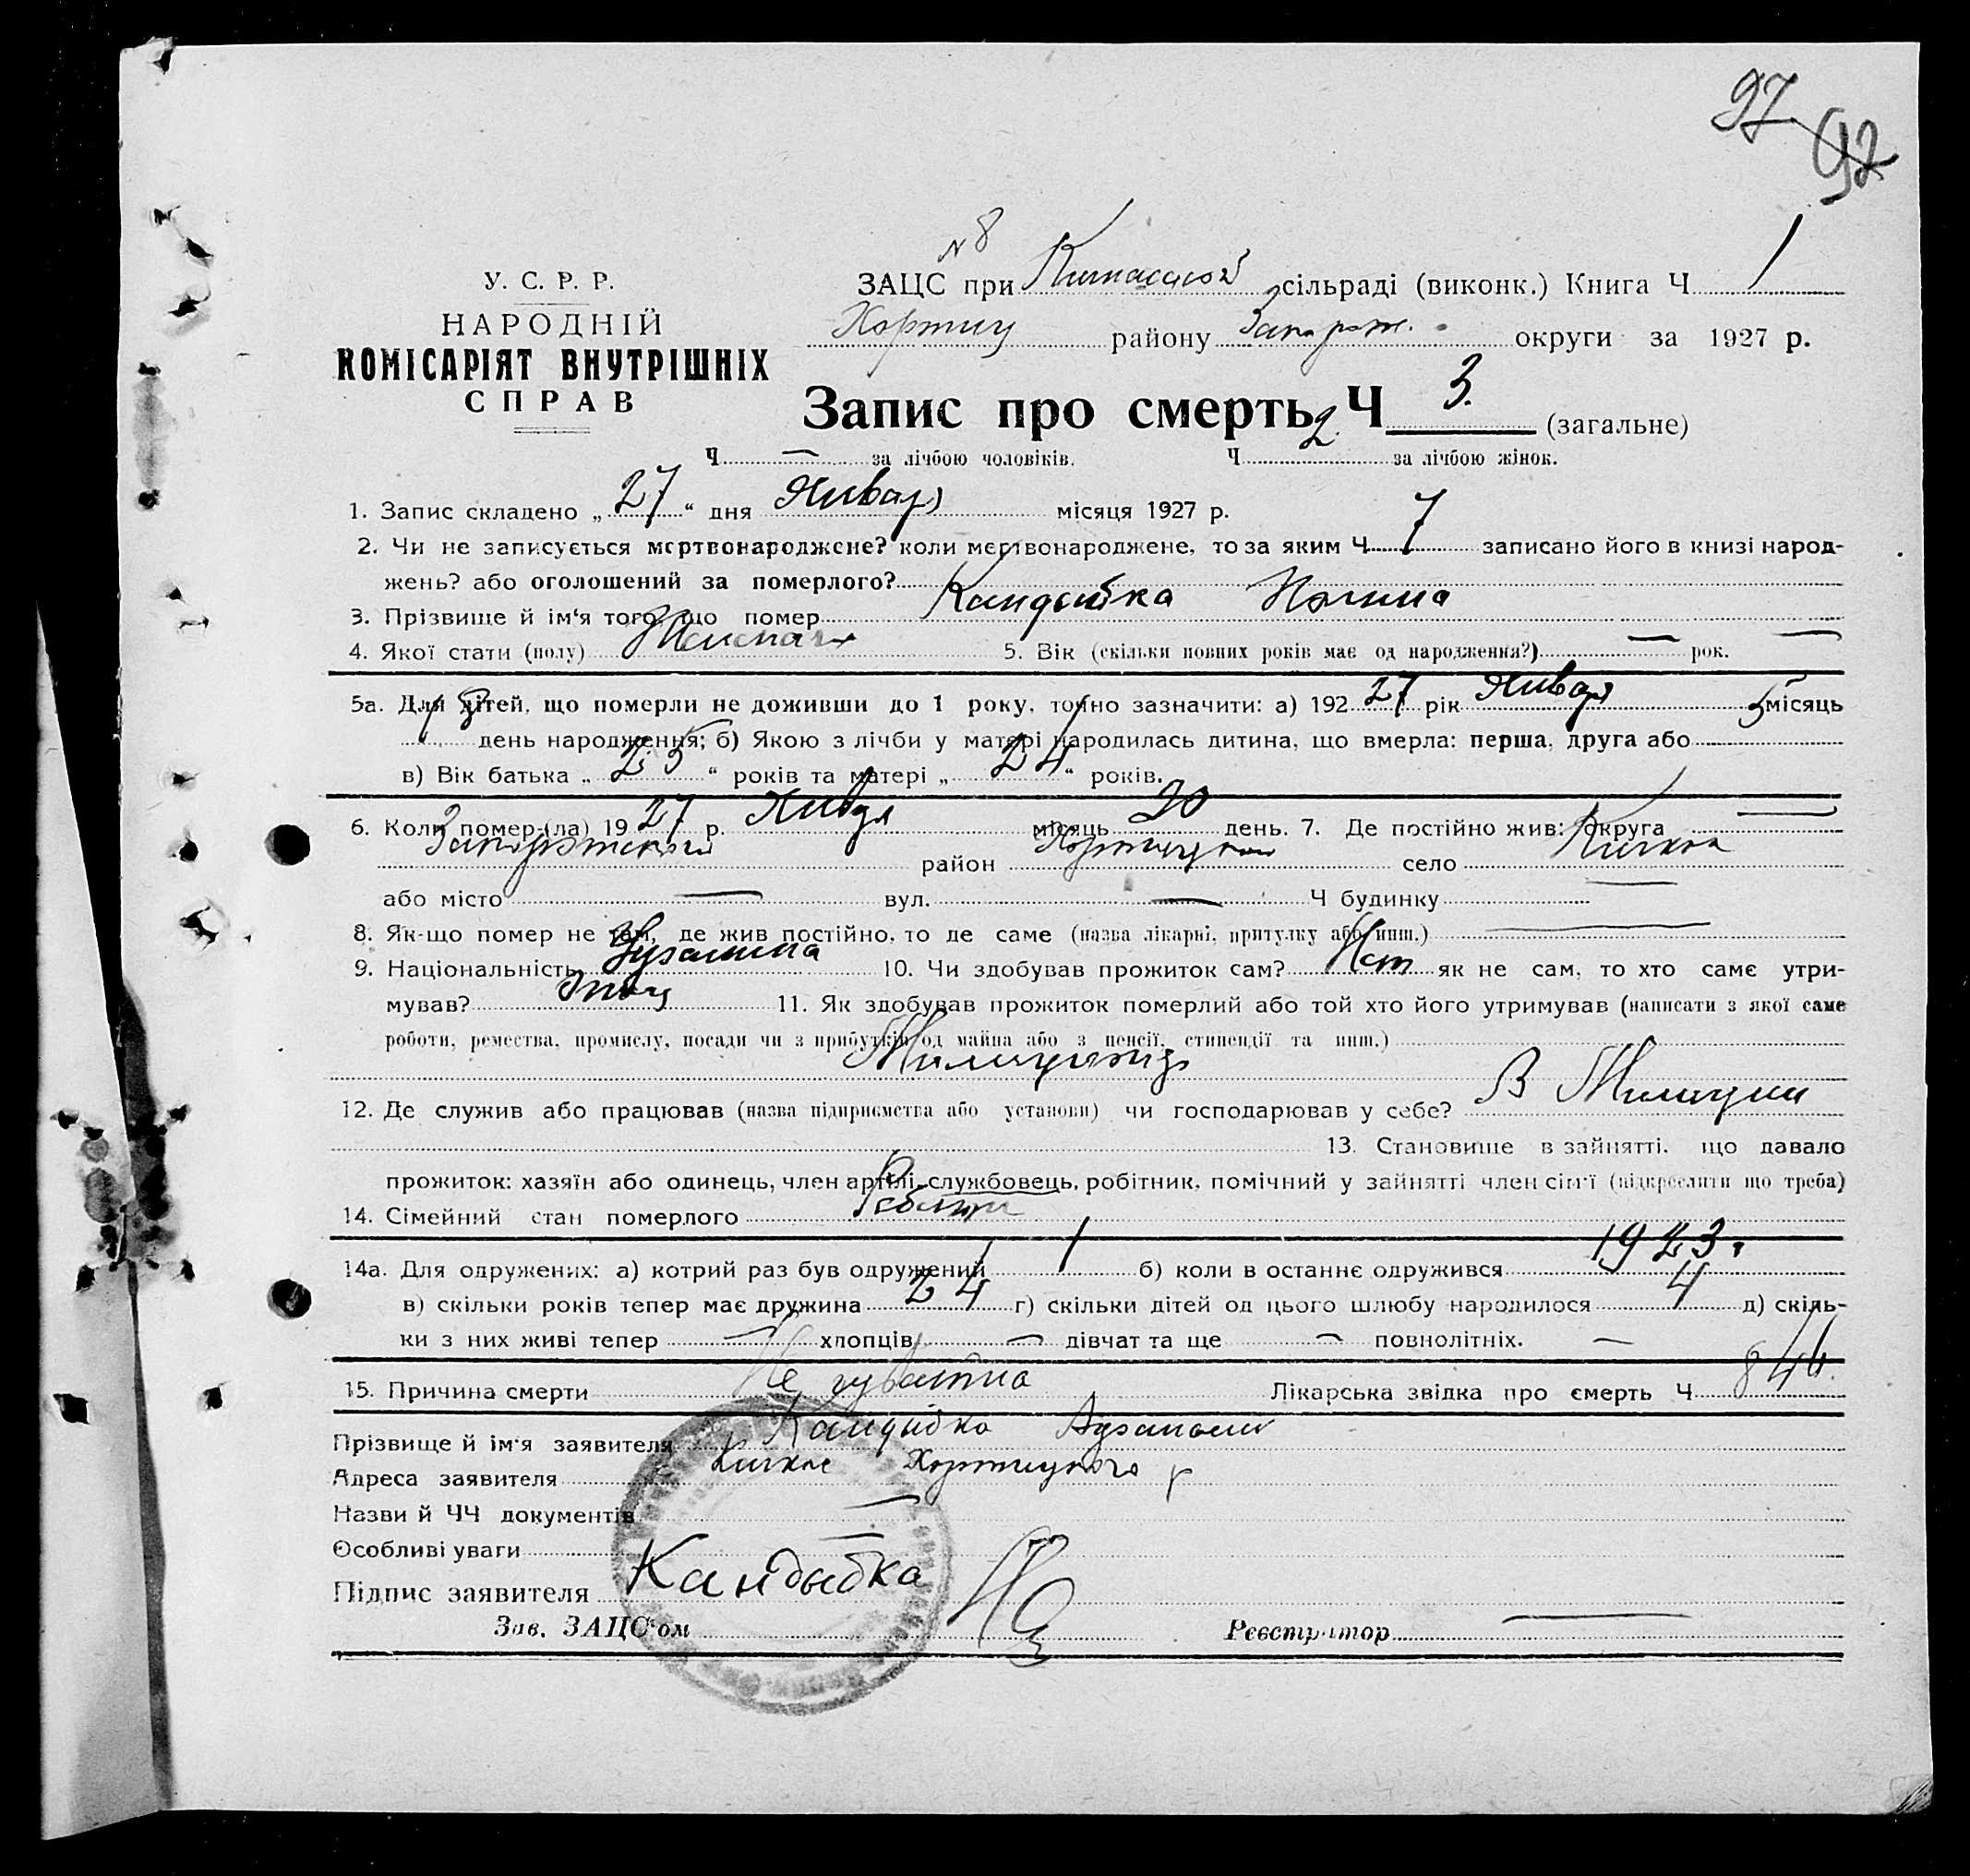 97 92
№ 8
У. С. Р. Р.
НАРОДНІЙ
КОМІСАРІЯТ ВНУТРІШНІХ
СПРАВ
ЗАЦС при сільраді (виконк.) Книга Ч 1
Хортиц району Запорож. округи за 1927 р.
Запис про смерть Ч 3. (загальне)
Ч — за лічбою чоловіків. Ч 2. за лічбою жінок.
1. Запис складено „27“ дня Января місяця 1927 р.
2. Чи не записується мертвонароджене? коли мертвонароджене, то за яким Ч 7 записано його в книзі народ-
жень? або оголошений за померлого?
3. Прізвище й ім'я того, що помер Кандыбка
4. Якої стати (полу) 5. Вік (скільки повних років має од народження?) — рок. —
5а. Для дітей, що померли не доживши до 1 року, точно зазначити: а) 192 27 рік Января місяць
день народження; б) Якою з лічби у матері народилась дитина, що вмерла: перша, друга або
в) Вік батька „25“ років та матері „24“ років.
6. Коли помер (ла) 1927 р. Января місяць 20 день. 7. Де постійно жив: округа —
район село Кичкас
або місто — вул. — Ч будинку —
8. Як-що помер не там, де жив постійно, то де саме (назва лікарні, притулку або инш.) —
9. Національність 10. Чи здобував прожиток сам? Нет як не сам, то хто саме утри-
мував? Отец 11. Як здобував прожиток померлий або той хто його утримував (написати з якої саме
роботи, ремества, промислу, посади чи з прибутків од майна або з пенсії, стипендії та инш.)
12. Де служив або працював (назва підприємства або установи) чи господарював у себе? В Милиции
13. Становище в зайнятті, що давало
прожиток: хазяїн або одинець, член артілі, службовець, робітник, помічний у зайнятті член сім'ї (підкреслити що треба)
14. Сімейний стан померлого
14а. Для одружених: а) котрий раз був одружений 1 б) коли в останнє одружився 1923.
в) скільки років тепер має дружина 24 г) скільки дітей од цього шлюбу народилося 4 д) скіль-
ки з них живі тепер — хлопців — дівчат та ще — повнолітніх. —
15. Причина смерти Лікарська звідка про смерть Ч 844.
Прізвище й ім'я заявителя Кандыбка
Адреса заявителя Хортицкого р
Назви й ЧЧ документів —
Особливі уваги —
Підпис заявителя Кандыбка
Зав. ЗАЦС'ом Реєстратор —